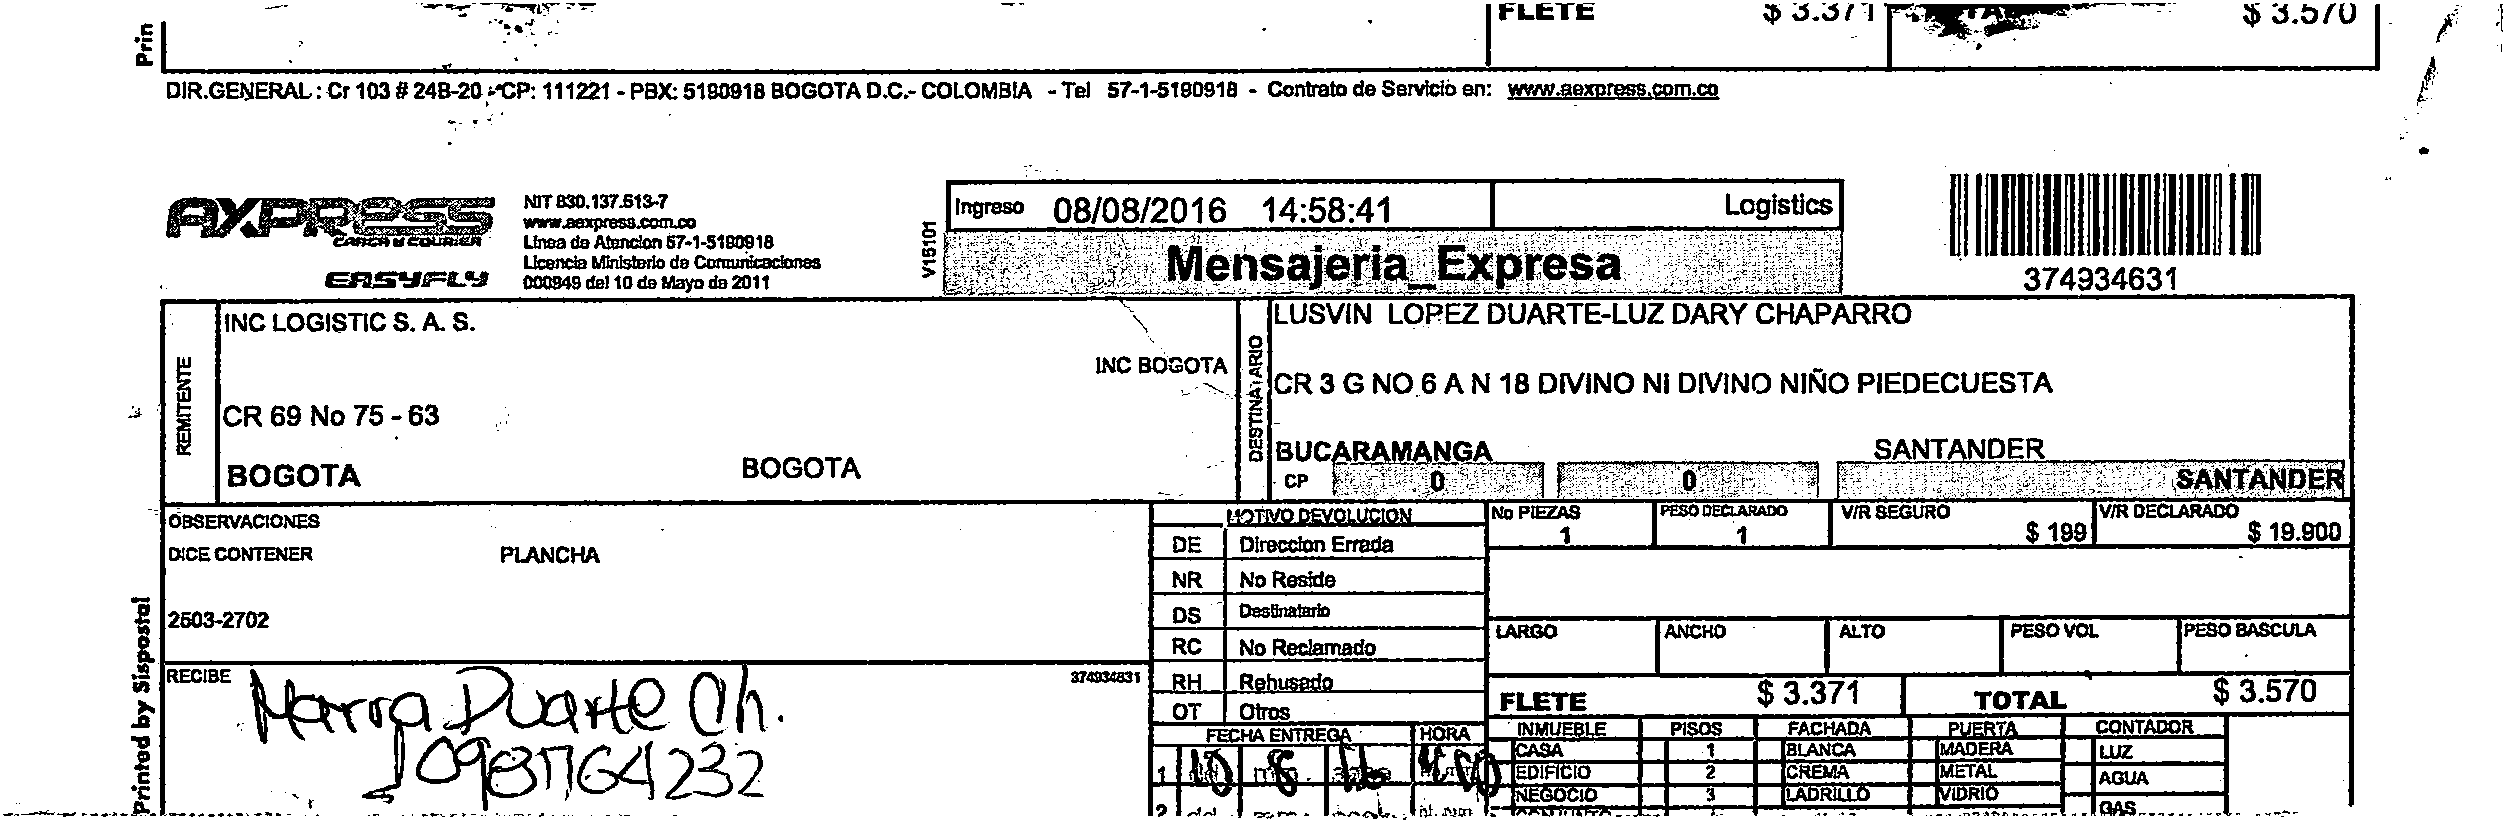 Prin
FLETE $ 3.371 $ 3.570
DIR.GENERAL : Cr 103 # 24B-20 - CP: 111221 - PBX: 5190918 BOGOTA D.C.- COLOMBIA - Tel 57-1-5190918 - Contrato de Servicio en: www.aexpress.com.co
AXPRESS
CARGA & COURIER
EASYFLY
NIT 830.137.513-7
www.aexpress.com.co
Linea de Atencion 57-1-5190918
Licencia Ministerio de Comunicaciones
000949 del 10 de Mayo de 2011
V15101
Ingreso 08/08/2016 14:58:41 Logistics
Mensajeria_Expresa
374934631
REMITENTE
INC LOGISTIC S. A. S.
INC BOGOTA
CR 69 No 75 - 63
BOGOTA BOGOTA
DESTINATARIO
LUSVIN LOPEZ DUARTE-LUZ DARY CHAPARRO
CR 3 G NO 6 A N 18 DIVINO NI DIVINO NIÑO PIEDECUESTA
BUCARAMANGA SANTANDER
CP 0 0 SANTANDER
OBSERVACIONES
DICE CONTENER PLANCHA
2503-2702
MOTIVO DEVOLUCION
DE Direccion Errada
NR No Reside
DS Destinatario
RC No Reclamado
RH Rehusado
OT Otros
No PIEZAS PESO DECLARADO V/R SEGURO V/R DECLARADO
1 1 $ 199 $ 19.900
LARGO ANCHO ALTO PESO VOL PESO BASCULA
FLETE $ 3.371 TOTAL $ 3.570
Printed by Sispostal
RECIBE 374934631
Duarte Ch.
FECHA ENTREGA HORA
1 10 8 16
2
INMUEBLE PISOS FACHADA PUERTA CONTADOR
CASA 1 BLANCA MADERA LUZ
EDIFICIO 2 CREMA METAL AGUA
NEGOCIO 3 LADRILLO VIDRIO GAS
CONJUNTO